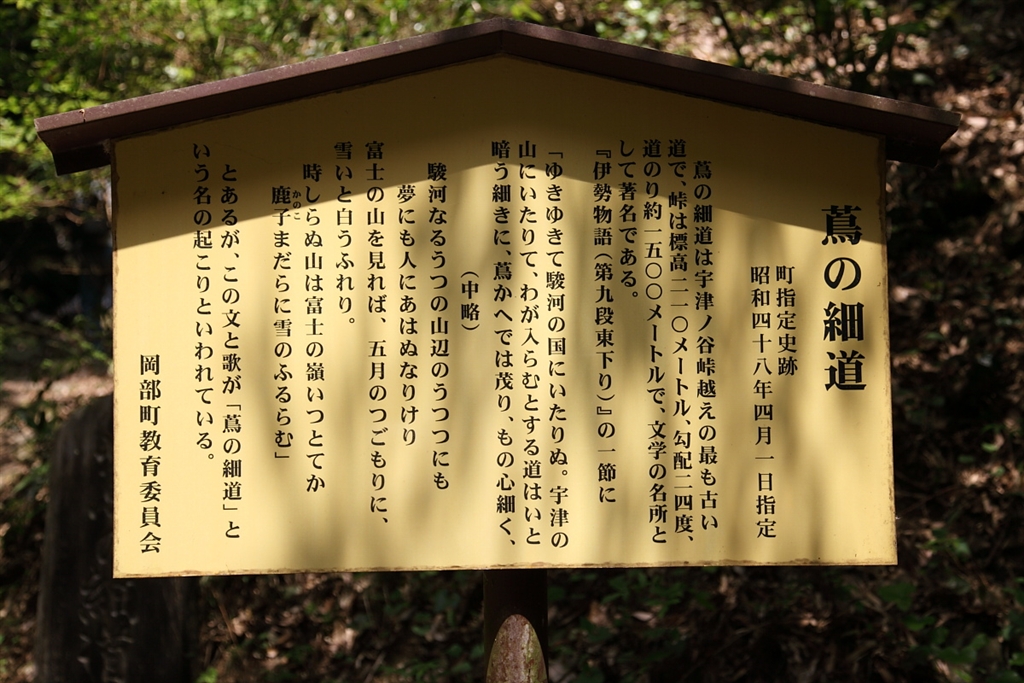 蔦の細道
町指定史跡
昭和四十八年四月一日指定
蔦の細道は宇津ノ谷峠越えの最も古い
道で、峠は標高二一〇メートル、勾配二四度、
道のり約一五〇〇メートルで、文学の名所と
して著名である。
『伊勢物語(第九段東下り)』の一節に
「ゆきゆきて駿河の国にいたりぬ。宇津の
山にいたりて、わが入らむとする道はいと
暗う細きに、蔦かへでは茂り、もの心細く、
(中略)
駿河なるうつの山辺のうつつにも
夢にも人にあはぬなりけり
富士の山を見れば、五月のつごもりに、
雪いと白うふれり。
時しらぬ山は富士の嶺いつとてか
鹿子まだらに雪のふるらむ」
かのこ
とあるが、この文と歌が「蔦の細道」と
いう名の起こりといわれている。
岡部町教育委員会